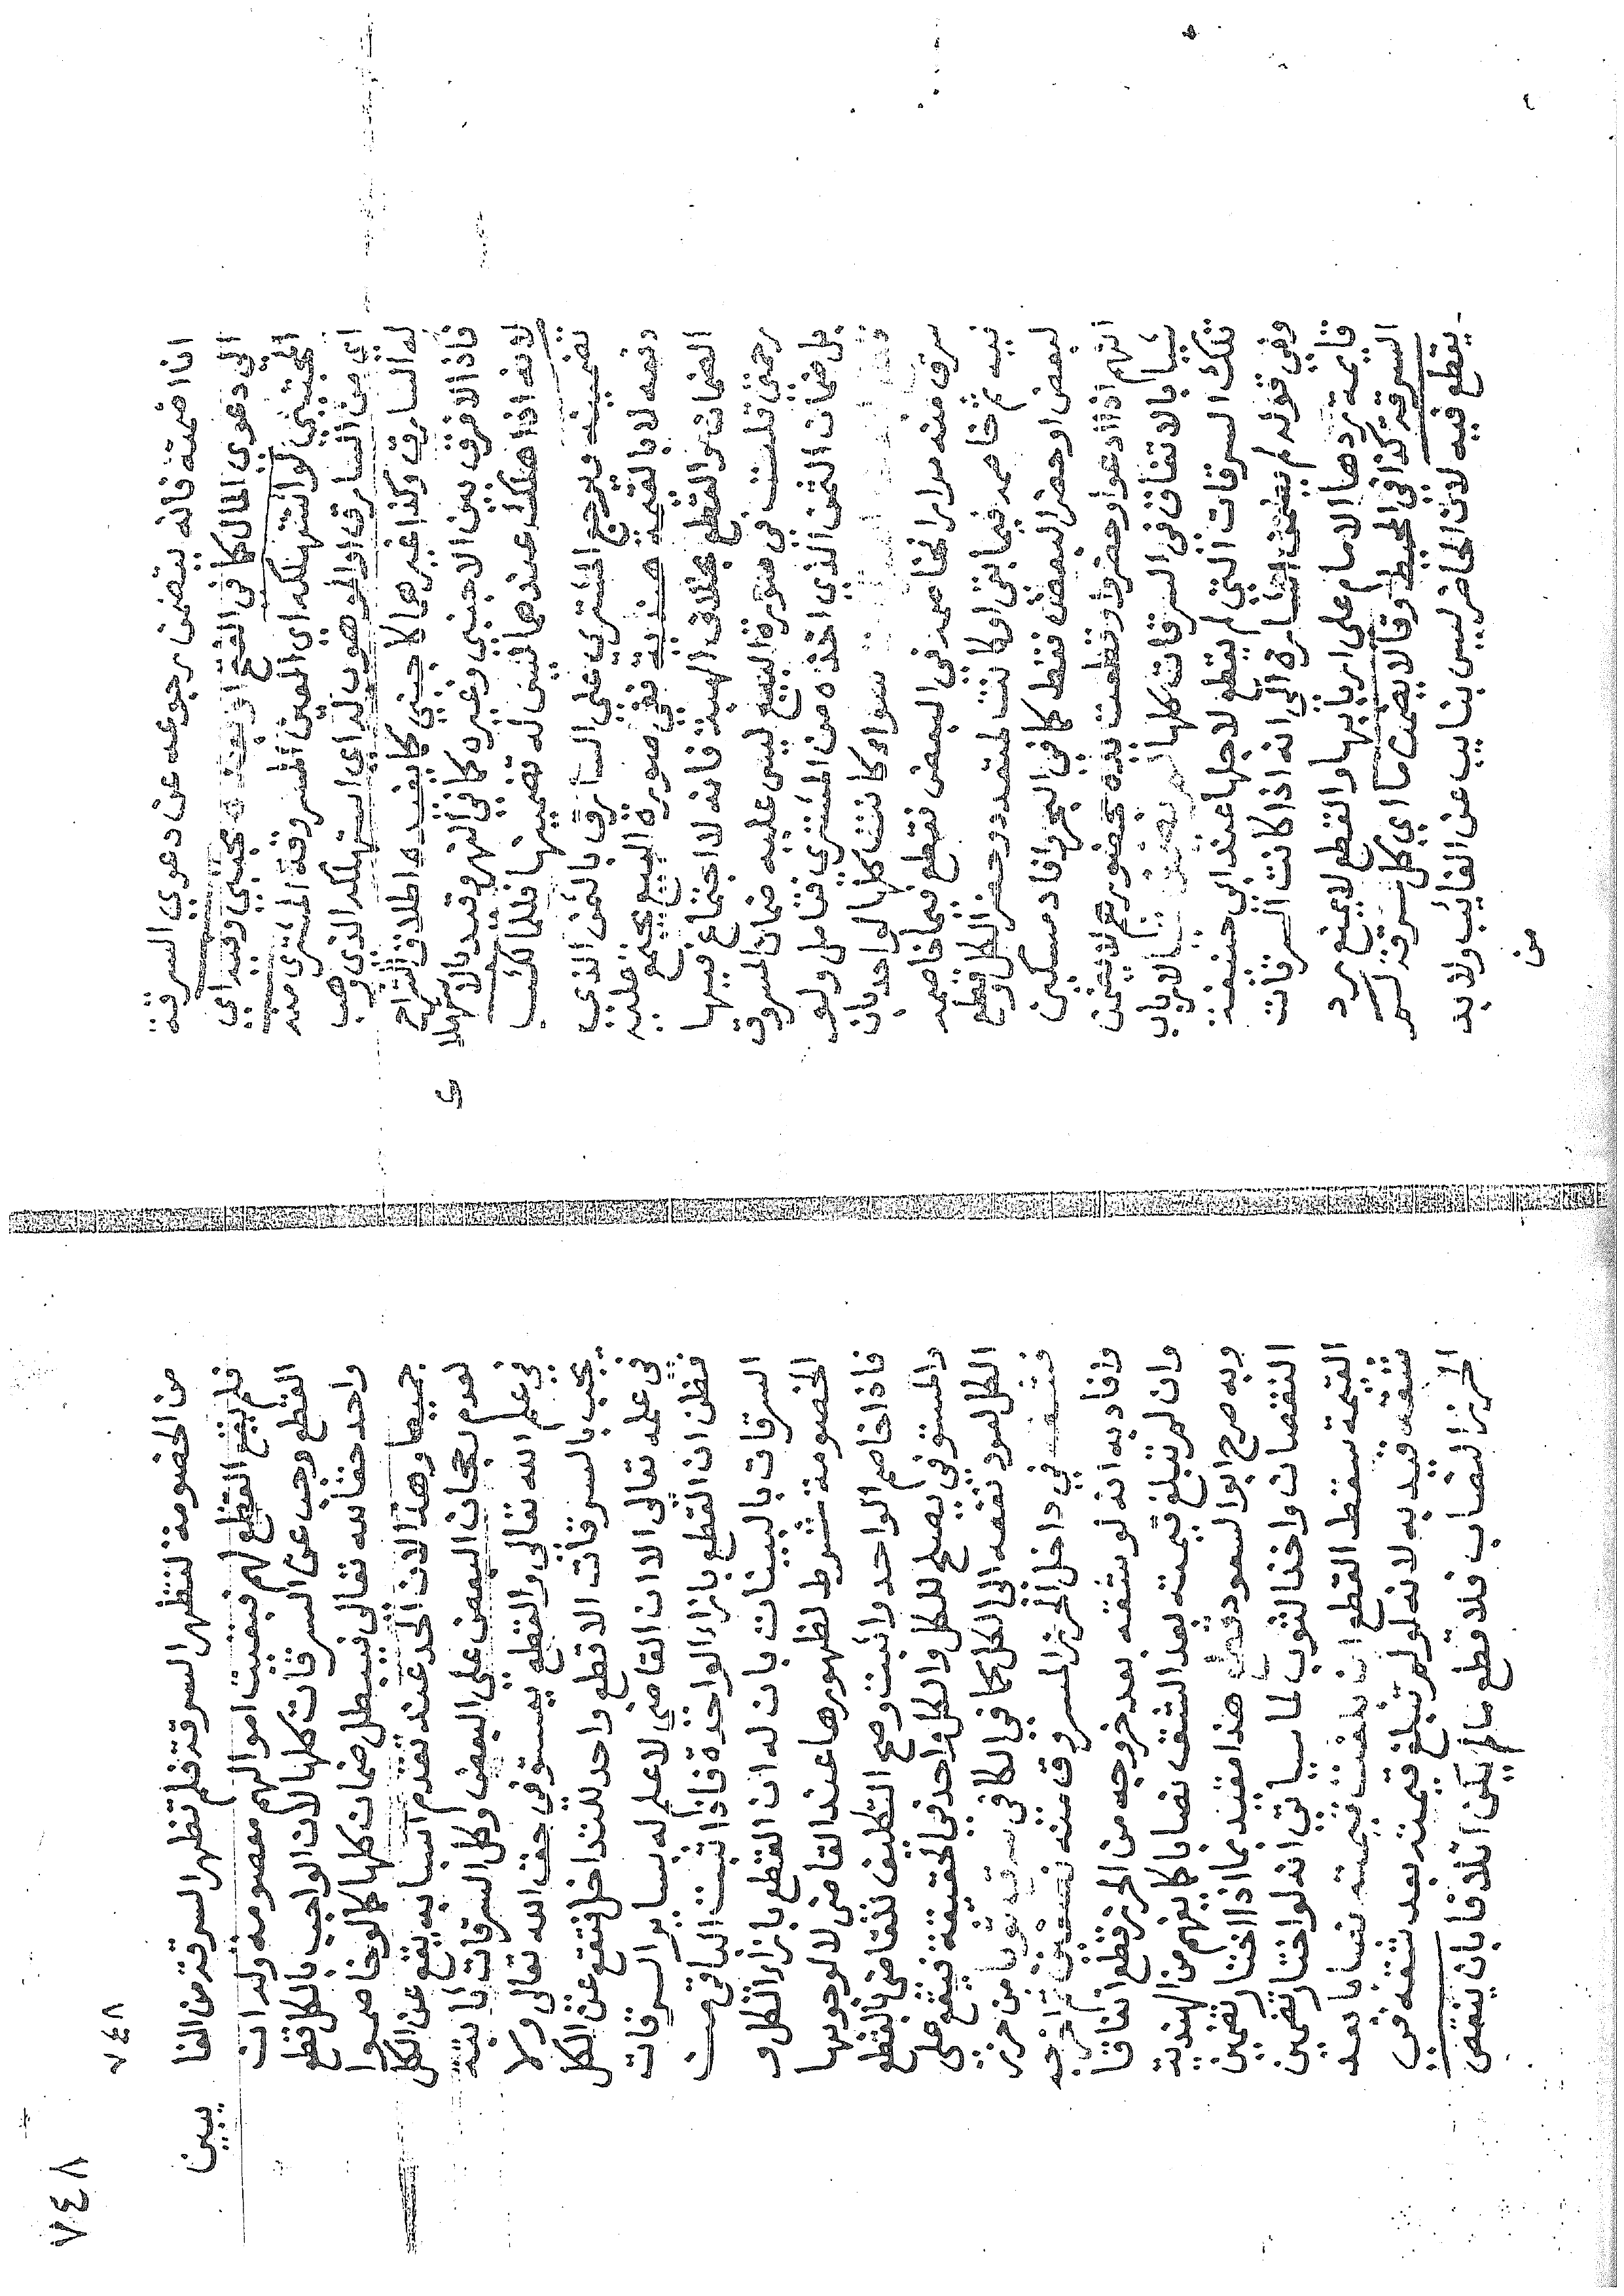 انا ضمنته فانه يتضمن رجوعه عن دعوى السرقة
الى دعوى المال كما فى الفتح او بعده مجتبى وفيه اي
المجتبى لو استهلكه اى العين المسروقة المشترى منه
اي من السارق او الموهوب له اي استهلكه الذي وهب
له السارق وكذا غيرهما الاجنبي كما يفيده اطلاق الشراح
فاذا لا فرق بين الاجنبى وغيره كما فى النهر وقيد بالاستهلا
لانه اذا هلك عندهما ليس له تضمينها فللمالك
تضمينه ويرجع المشترى على السارق بالثمن الذي
دفعه لا بالقيمة هندية ففى صورة البيع يجتمع عليه
الضمان والقطع بخلاف الهبة فانه لا اجتماع فيها
رحمتى قلت فى صورة البيع ليس عليه ضمان المسروق
بل ضمان الثمن الذي اخذه من المشترى فتامل ولو
سواء كانت كلها لواحد بان
سرق منه مرارا فخاصمه في البعض فقطع فيما خاصمه
فيه ثم خاصمه فيما بقى او كانت لمتعدد وحضر الكل وقطع
لبعض او حضر البعض فقط كما في البحر افاد مسكين
انهم اذا ادعوا وحضروا وقطعت يده بحضورهم لا يضمن
شيئا بالاتفاق فى السرقات كلها لم يضمن شيئا لارباب
تلك السرقات التي لم يقطع لاجلها عند ابى حنيفة
وفي قوله لم يضمن اشارة الى انه اذا كانت السرقات
قايمة يردها الامام على اربابها والقطع لا يمنع يرد
السرقة كذا فى المحيط وقالا يضمن ما اي كل سرقة لم
يقطع فيه لان الحاضر ليس بنايب عن الغايب ولا بد
من
٧٤٨
٧٤٨
من الخصومة لتظهر السرقة فلم تظهر السرقة من الغا
يبين
فلم يقع القطع لهم فبقيت اموالهم معصومة وله ان
القطع وجب عن السرقات كلها لان الواجب بالكل قطع
واحد حقا لله تعالى فيبطل ضمان كلها كما لو خاصموا
جميعا وهذا لان الحد عند تقدم اسبابه يقع عن الكل
لعدم رجحان البعض على البعض وكل السرقات ثابتة
في علم الله تعالى والقطع يستوفى حق الله تعالى ولا
يجب بالسرقات الا قطع واحد للتداخل فتقع عن الكل
فى علمه تعالى الا ان القاضى لا علم له بساير السرقات
فيظن ان القطع بازاء الواحدة فاذا اثبت الباقى من
السرقات بالبينات بان له ان القطع بازاء الكل و
الخصومة شرط لظهورها عند القاضى لا لوجوبها
فاذا خاصم الواحد واثبت وصح التكليف للقاضى بالقطع
والمستوفى يصلح للكل والكل واحد في الحقيقة فيقع على
الكل لعود نفعه الى الكل كما في الكافى سرق ثوبا من حرز
فشقه في داخل الحرز المسروق منه نصفين ثم اخرجه
وافاد به انه لو شقه بعد خروجه من الحرز قطع اتفاقا
وان لم تبلغ قيمته بعد الشق نصابا كما يفهم من الهندية
وبه صرح ابو السعود هذا مقيد بما اذا اختار تضمين
النقصان واخذ الثوب لما سياتى انه لو اختار تضمين
القيمة سقط القطع ان بلغت قيمته نصابا بعد
شقه قيد به لانه لو لم تبلغ قيمته بعد شقه فى
الحرز النصاب فلا قطع مالم يكن اتلافا بان ينقص